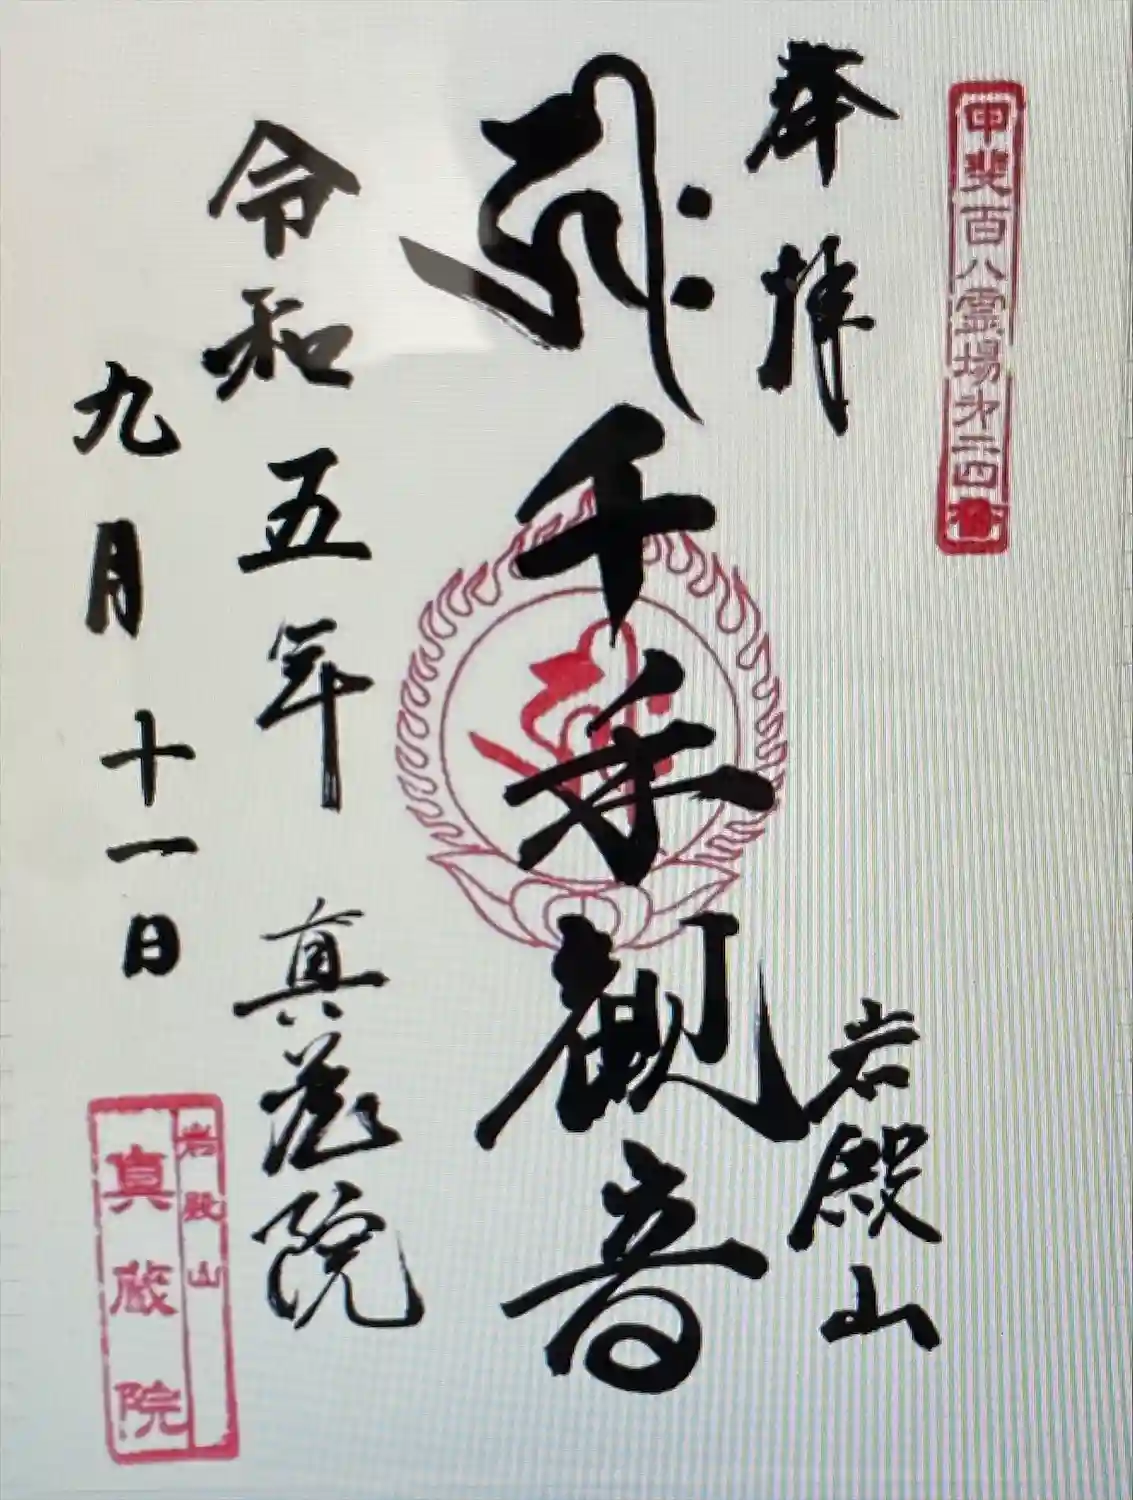 甲斐百八霊場第二四番
奉拝
岩殿山
𑖮𑖿𑖨𑖱𑖾
千手観音
令和五年 真蔵院
九月十一日
岩殿山
真蔵院